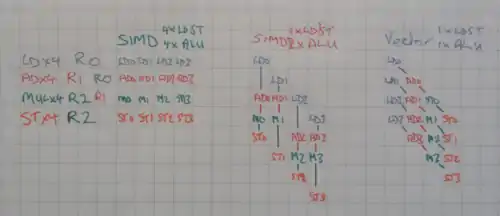 SIMD 4xLDST 4xALU
SIMD 1xLDST 2xALU
Vector 1xLDST 1xALU
LDx4 R0 LD0 LD1 LD2 LD3 LD0 LD0
ADx4 R1 R0 AD0 AD1 AD2 AD3 LD1 LD1 AD0
MULx4 R2 R1 M0 M1 M2 M3 AD0 AD1 LD2 LD2 AD1 M0
STx4 R2 ST0 ST1 ST2 ST3 M0 M1 LD3 LD3 AD2 M1 ST0
ST0 AD2 AD3 AD3 M2 ST1
ST1 M2 M3 M3 ST2
ST2 ST3
ST3